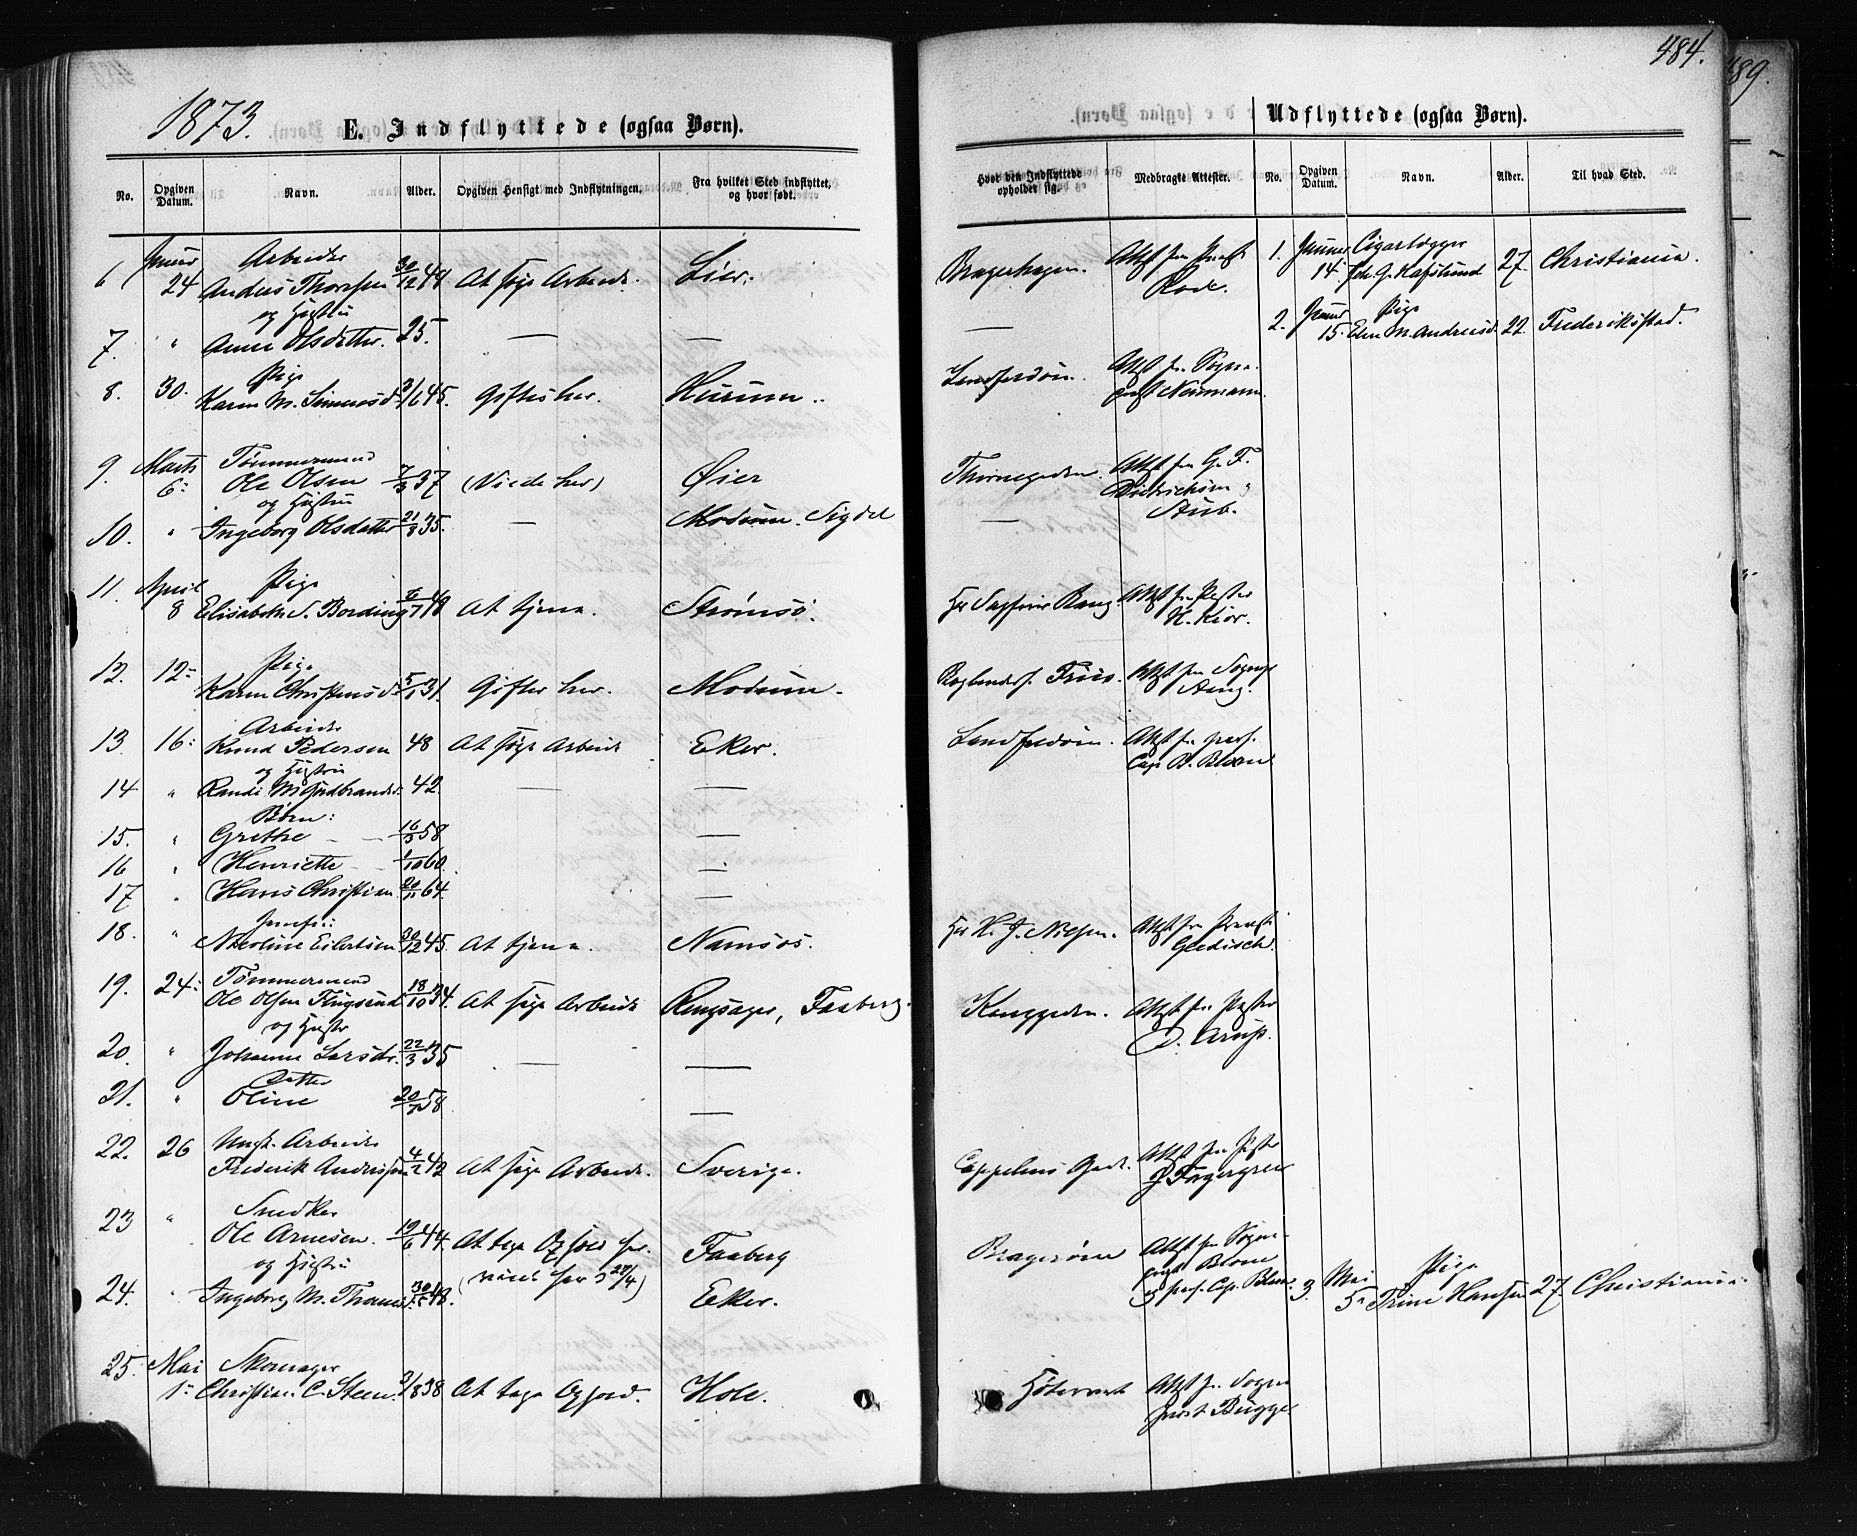 484.
489.
1873.
E. Indflyttede (ogsaa Børn).
No. Opgiven Datum. Navn. Alder. Opgiven Hensigt med Indflytningen. Fra hvilket Sted indflyttet, og hvor født.
6 Januar 24 Arbeider Anders Thorsen 30/12 44 At søge Arbeide. Lier.
og Hustru
7. " Anne Olsdatter. 25. — —
8. 30. Pige Karen M. Simensd. 3/6 45. Giftes her. Hurum.
9. Marts 6: Tømmermand Ole Olsen 7/3 37 (Viede her) Øier
og Hustru
10. " Ingeborg Olsdatter 21/3 35. — Modum. Sigdal
11. April 8 Pige Elisabeth S. Bording 6/7 48 At tjene. Strømsø.
12. 12: Pige Karen Christensd. 5/1 31. Gifter her. Modum.
13. 16: Arbeider Knud Pedersen 48 At søge Arbeide Eker.
og Hustru
14 " Randi M. Gudbrandsd. 42. — —
Børn:
15. " Grethe 16/3 58 —
16 " Henriette 1/10 60. —
17 " Hans Christian 20/11 64. —
18. " Nicoline Eilertsen 30/12 45. At tjene. Namsos.
19. 24: Tømmermand Ole Olsen Flugsrud 18/10 34. At søge Arbeide Ringsager, Faaberg.
og Hustr
20. " Johanne Larsdr. 22/3 35 — —
Datter
21. " Oline 58 —
22. 26 Ungk. Arbeider Frederik Anderssen 4/2 42 At søge Arbeide. Sverige.
23 " Snedker Ole Arnesen. 19/6 44. At tage Ophold her. Faaberg
og Hustru
(viede her d 27/4)
24. " Ingeborg M. Thoresd. 48. Eker.
25. Mai 1: Skomager Christian C. Steen. 2/8 38 At tage Ophold. Hole.
Udflyttede (ogsaa Børn).
Hvor den Indflyttede opholder sig. Medbragte Attester. No. Opgiven Datum. Navn. Alder. Til hvad Sted.
Bragerhagen. Attest fra Præst Rode. 1. Januar 14. Cigarlægger Joh. G. Kafslund 27. Christiania.
— 2. Januar 15. Pige Elen M. Andreasd. 22. Frederikstad.
Landfaldøen. Attest fra Sogne- præst Normann.
Thornegaden. Attest fra G. F. Diedrichsen og Stub.
—
Hr Bang. Attest fra Pastor H. Kiær.
Friis. Attest fra Sognepr Aang.
Landfaldøen. Attest fra pers. Cap. B. Blom
Hr H. J. Nielsen. Attest fra Præst Gjedisch.
Konggaden. Attest fra Pastor D. Arup.
Cappelens Gade. Attest fra Pastor J. Fagergreen
Bragerøen Attest fra Sogne- præst Blom og pers. Cap. Blom. 3. Mai 5: Pige Trine Hansen 27. Christiania.
Attest fra Sogne præst Bugge